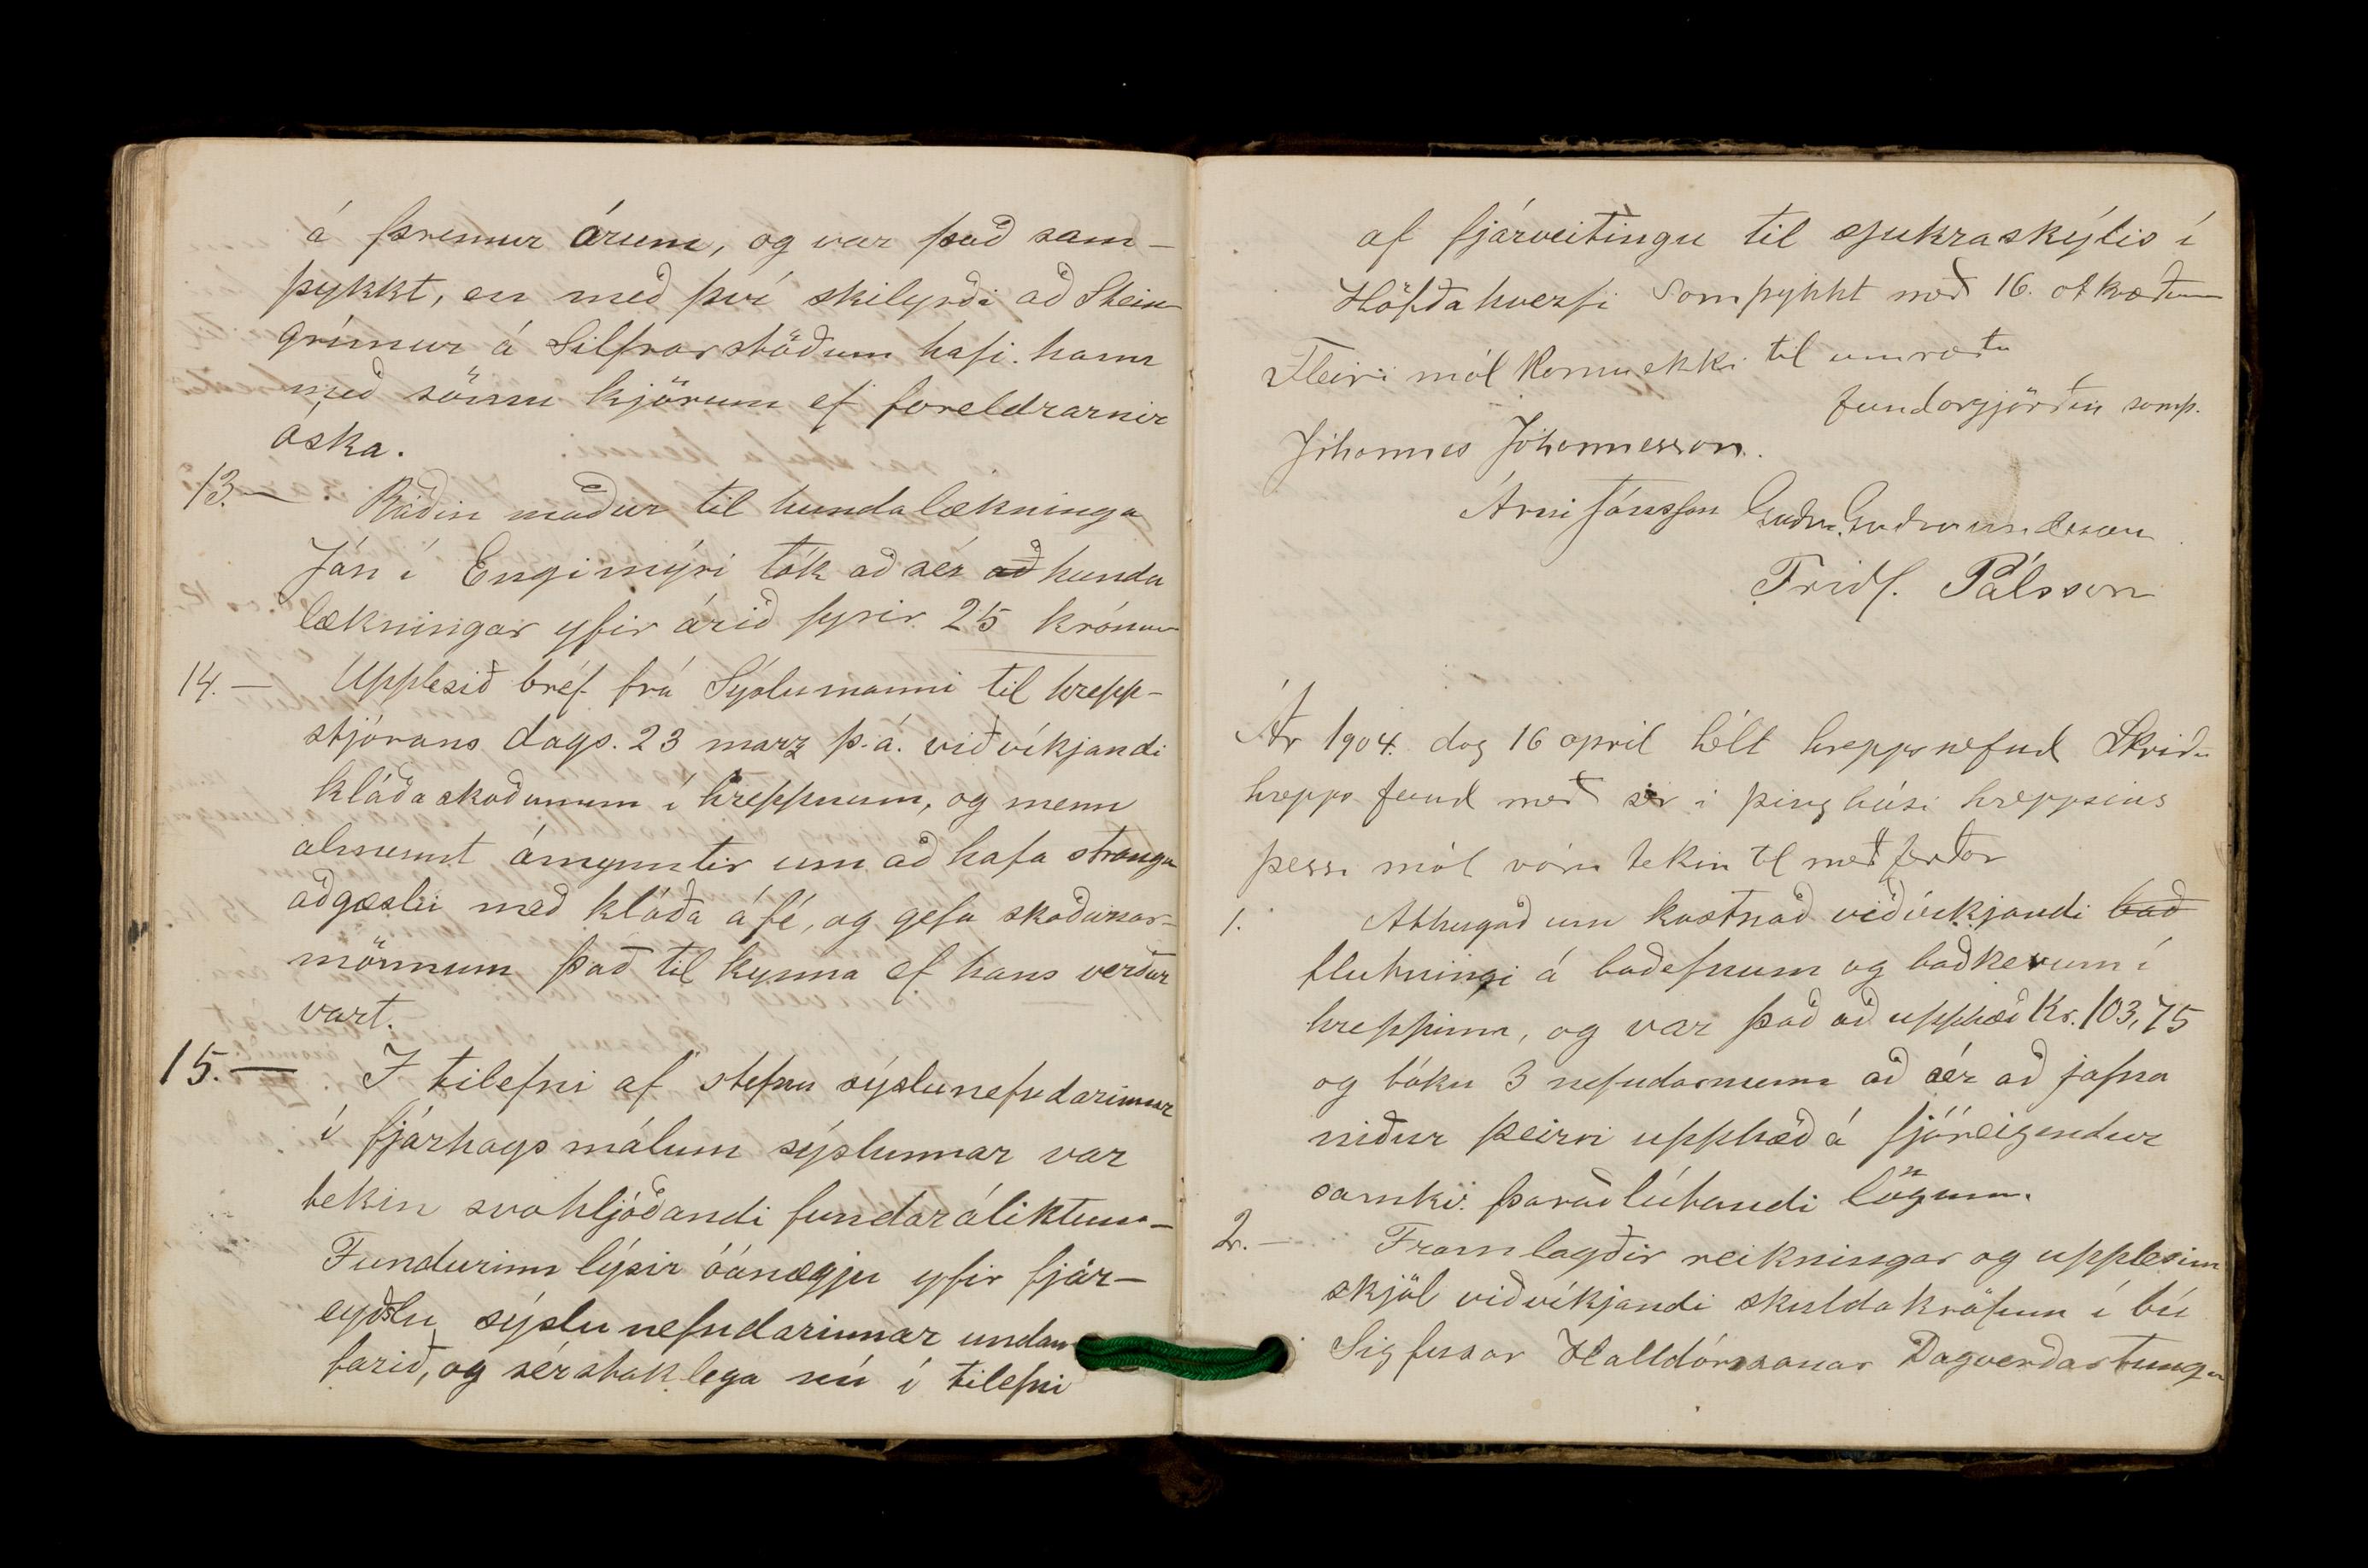 á þremur árum, og var það sam-
þykkt, en með því skilyrði að Stein
grímur á Silfrarstöðum hafi hann
með sömu kjörum ef foreldrarnir
óska.
13. — Ráðin maður til hundalækninga
Jón í Engimýri tók að sér að hunda
lækningar yfir árið fyrir 25 krónur
14. — Upplesið bréf frá Sýslumanni til hrepp-
stjórans dags. 23 marz þ.á. viðvíkjandi
kláðaskoðunum í hreppnum, og menn
almennt ámynntir um að hafa stranga
aðgæslu með kláða á fé, og gefa skoðunar-
mönnum það til kynna ef hans verður
vart.
15. — I tilefni af stefnu sýslunefndarinnar
í fjárhagsmálum sýslunnar var
tekin svohljóðandi fundarályktun-
Fundurinn lýsir óánægju yfir fjár-
eyðslu sýslunefndarinnar undan
farið, og sérstaklega nú í tilefni
af fjárveitingu til sjukraskýlis í
Höfðahverfi Samþykkt með 16. atkvæðum
Fleiri mál komu ekki til umræðu
fundargjörðin samþ.
Jóhannes Jóhannesson.
Árni Jónsson Guðm. Guðmundsson
Friðf. Pálsson
Ár 1904. dag 16 april hélt hreppsnefnd Skriðu
hrepps fund með sér i þinghúsi hreppsins
þessi mál vóru tekin til með ferðar
1. Athugað um kostnað viðvíkjandi bað
flutningi á baðefnum og baðkerum í
hreppinn, og var það að upphæð Kr. 103,75
og tóku 3 nefndarmenn að sér að jafna
niður þeirri upphæð á fjáreigendur
samkv. þaraðlútandi lögum.
2. — Framlagðir reikningar og upplesin
skjöl viðvíkjandi skuldakröfum í bú
Sigfusar Halldórssonar Dagverðartungu